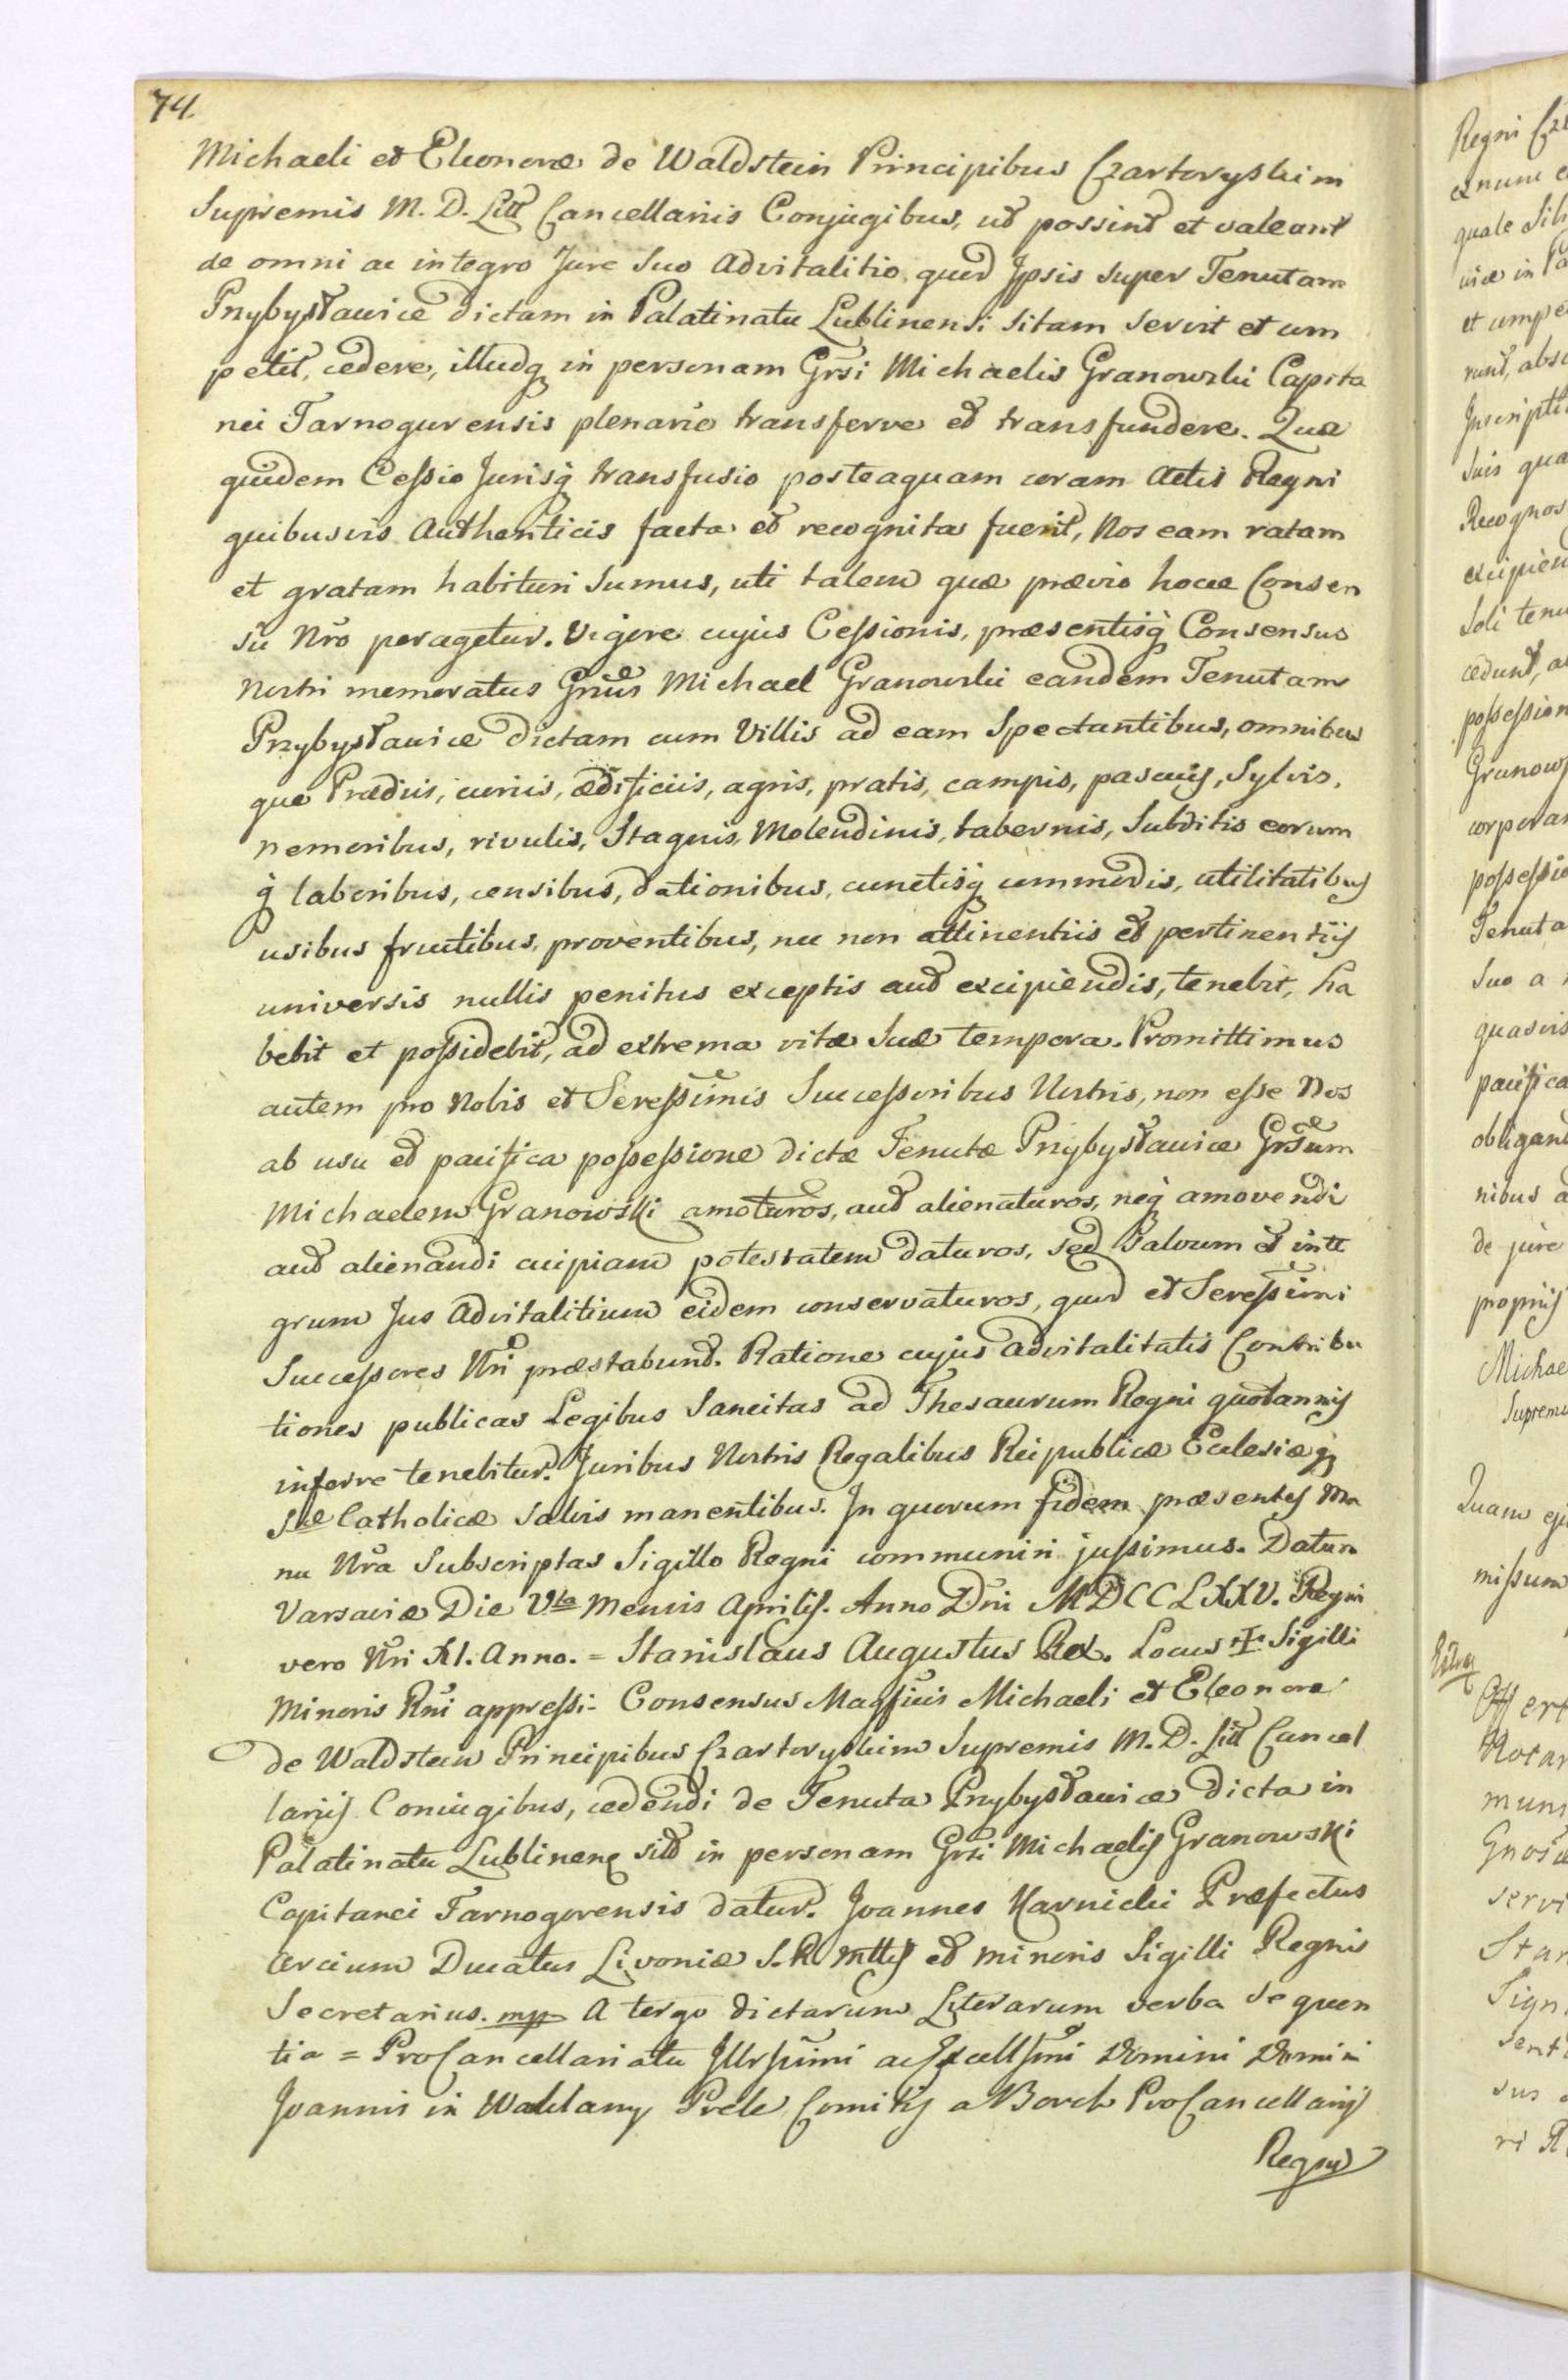 74.
Michaeli et Eleonoræ de Waldstein Principibus Czartoryskim
Supremis M. D. Litt Cancellariis Conjugibus, ut possint et valeant
de omni ac integro Jure Suo Advitalitio, quod Ipsis super Tenutam
Przybysławice dictam in Palatinatu Lublinensi sitam servit et com
petit, cedere, illudq in personam Grsi Michaelis Granowski Capita
nei Tarnogurensis plenarie transferre et transfundere. Quæ
quidem Cessio Jurisq transfusio posteaquam coram Actis Regni
quibusvis Authenticis facta et recognita fuerit, Nos eam ratam
et gratam habituri sumus, uti talem quæ prævio hocce Consen
su Nro peragetur. Vigore cujus Cessionis, præsentisq Consensus
Nostri memoratus Grsus Michael Granowski eandem Tenutam
Przybysławice dictam cum Villis ad eam Spectantibus, omnibus
que Prædiis, curiis, ædificiis, agris, pratis, campis, pascuis, Sylvis,
nemoribus, rivulis, Stagnis, Molendinis, tabernis, Subditis eorum
q laboribus, censibus, dationibus, cunctisq commodis, utilitatibus
usibus fructibus, proventibus, nec non attinentiis et pertinentiis
universis nullis penitus exceptis aut excipiendis, tenebit, ha
bebit et possidebit, ad extrema vitæ Suæ tempora. Promittimus
autem pro Nobis et Seressimis Successoribus Nostris, non esse Nos
ab usu et pacifica possessione dictæ Tenutæ Przybysławice Grsum
Michaelem Granowski amoturos, aut alienaturos, neq amovendi
aut alienandi cuipiam potestatem daturos, sed Salvum et inte
grum Jus Advitalitium eidem conservaturos, quod et Seressimi
Successores Nri præstabunt. Ratione cujus advitalitatis Contribu
tiones publicas Legibus Sancitas ad Thesaurum Regni quotannis
inferre tenebitur. Juribus Nostris Regalibus Reipublicæ Ecclesiæq
Stæ Catholicæ salvis manentibus. In quorum fidem præsentes Ma
nu Nra Subscriptas Sigillo Regni communiri jussimus. Datum
Varsaviæ Die Vta Mensis Aprilis. Anno Dni MDCCLXXV. Regni
vero Nri XI. Anno. = Stanislaus Augustus Rex. Locus Sigilli
Minoris Rni appressi - Consensus Magficis Michaeli et Eleonoræ
de Waldstein Principibus Czartoryskim Supremis M. D. Litt Cancel
lariis Coniugibus, cedendi de Tenuta Przybysławice dicta in
Palatinatu Lublinen sit in personam Grsi Michaelis Granowski
Capitanei Tarnogorensis datur. Joannes Karnicki Præfectus
arcium Ducatus Livoniæ S. R. Mttis et minoris Sigilli Regni
Secretarius. mp A tergo dictarum Literarum verba Sequen
tia = ProCancellariatu Illrssimi ac Excellssimi Domini Domini
Joannis in Waklany Prele Comitis a Borch ProCancellarii
Regni
Regni
ex nunc
quale
viæ in
et
runt,
Suis
Recognos
Soli tenu
cedunt,
possession
Granows
corpora
possessio
Tenuta
Suo a
quasvis
pacifica
nibus a
de jure
Michae
Supremu
Quam
missum
Offert
Notar
mun
servi
Star
Sign
sent
sus